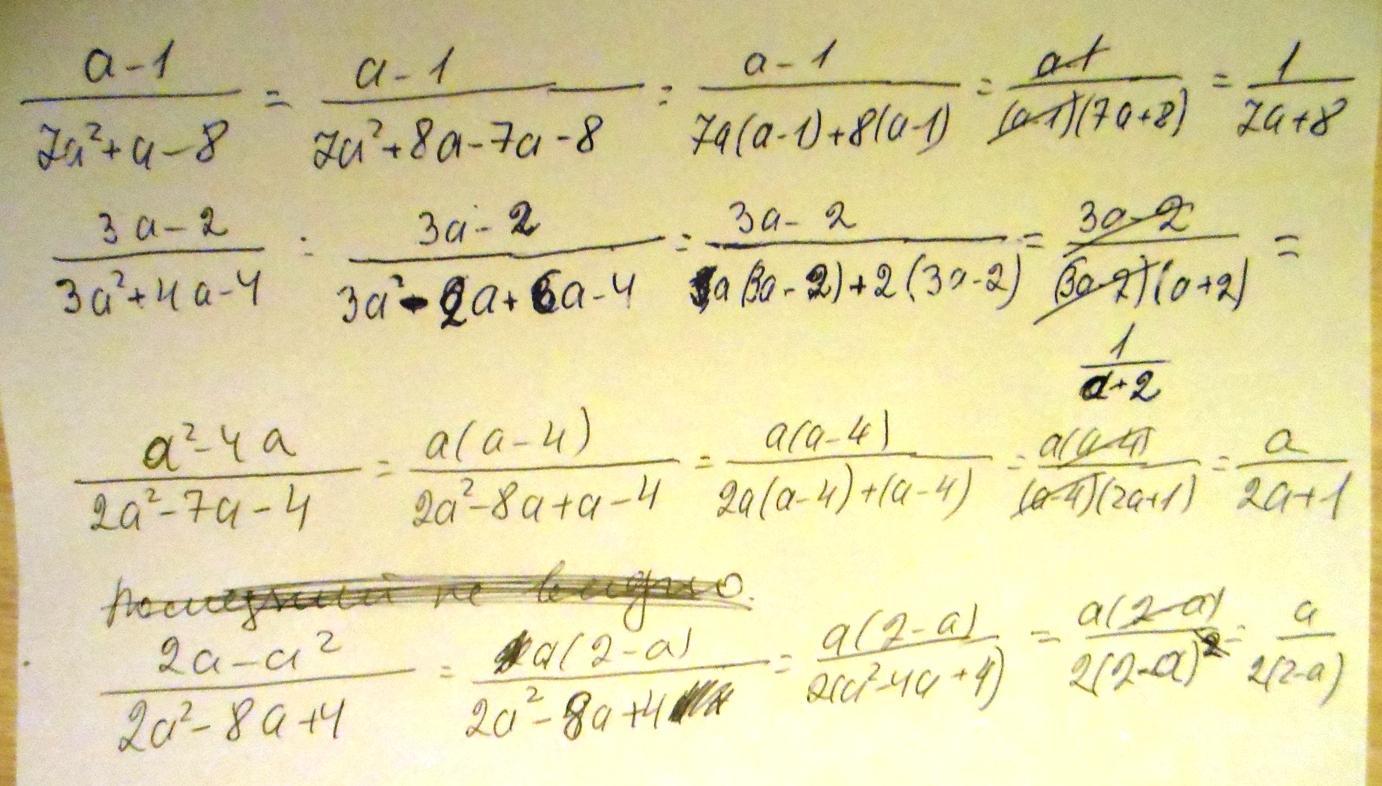 (a-1)/(7a²+a-8) = (a-1)/(7a²+8a-7a-8) = (a-1)/(7a(a-1)+8(a-1)) = (a-1)/((a-1)(7a+8)) = 1/(7a+8)
(3a-2)/(3a²+4a-4) = (3a-2)/(3a²-2a+6a-4) = (3a-2)/(a(3a-2)+2(3a-2)) = (3a-2)/((3a-2)(a+2)) =
1/(a+2)
(a²-4a)/(2a²-7a-4) = a(a-4)/(2a²-8a+a-4) = a(a-4)/(2a(a-4)+(a-4)) = a(a-4)/((a-4)(2a+1)) = a/(2a+1)
последний не видно.
(2a-a²)/(2a²-8a+4) = a(2-a)/(2a²-8a+4) = a(2-a)/(2(a²-4a+4)) = a(2-a)/(2(2-a)²) = a/(2(2-a))